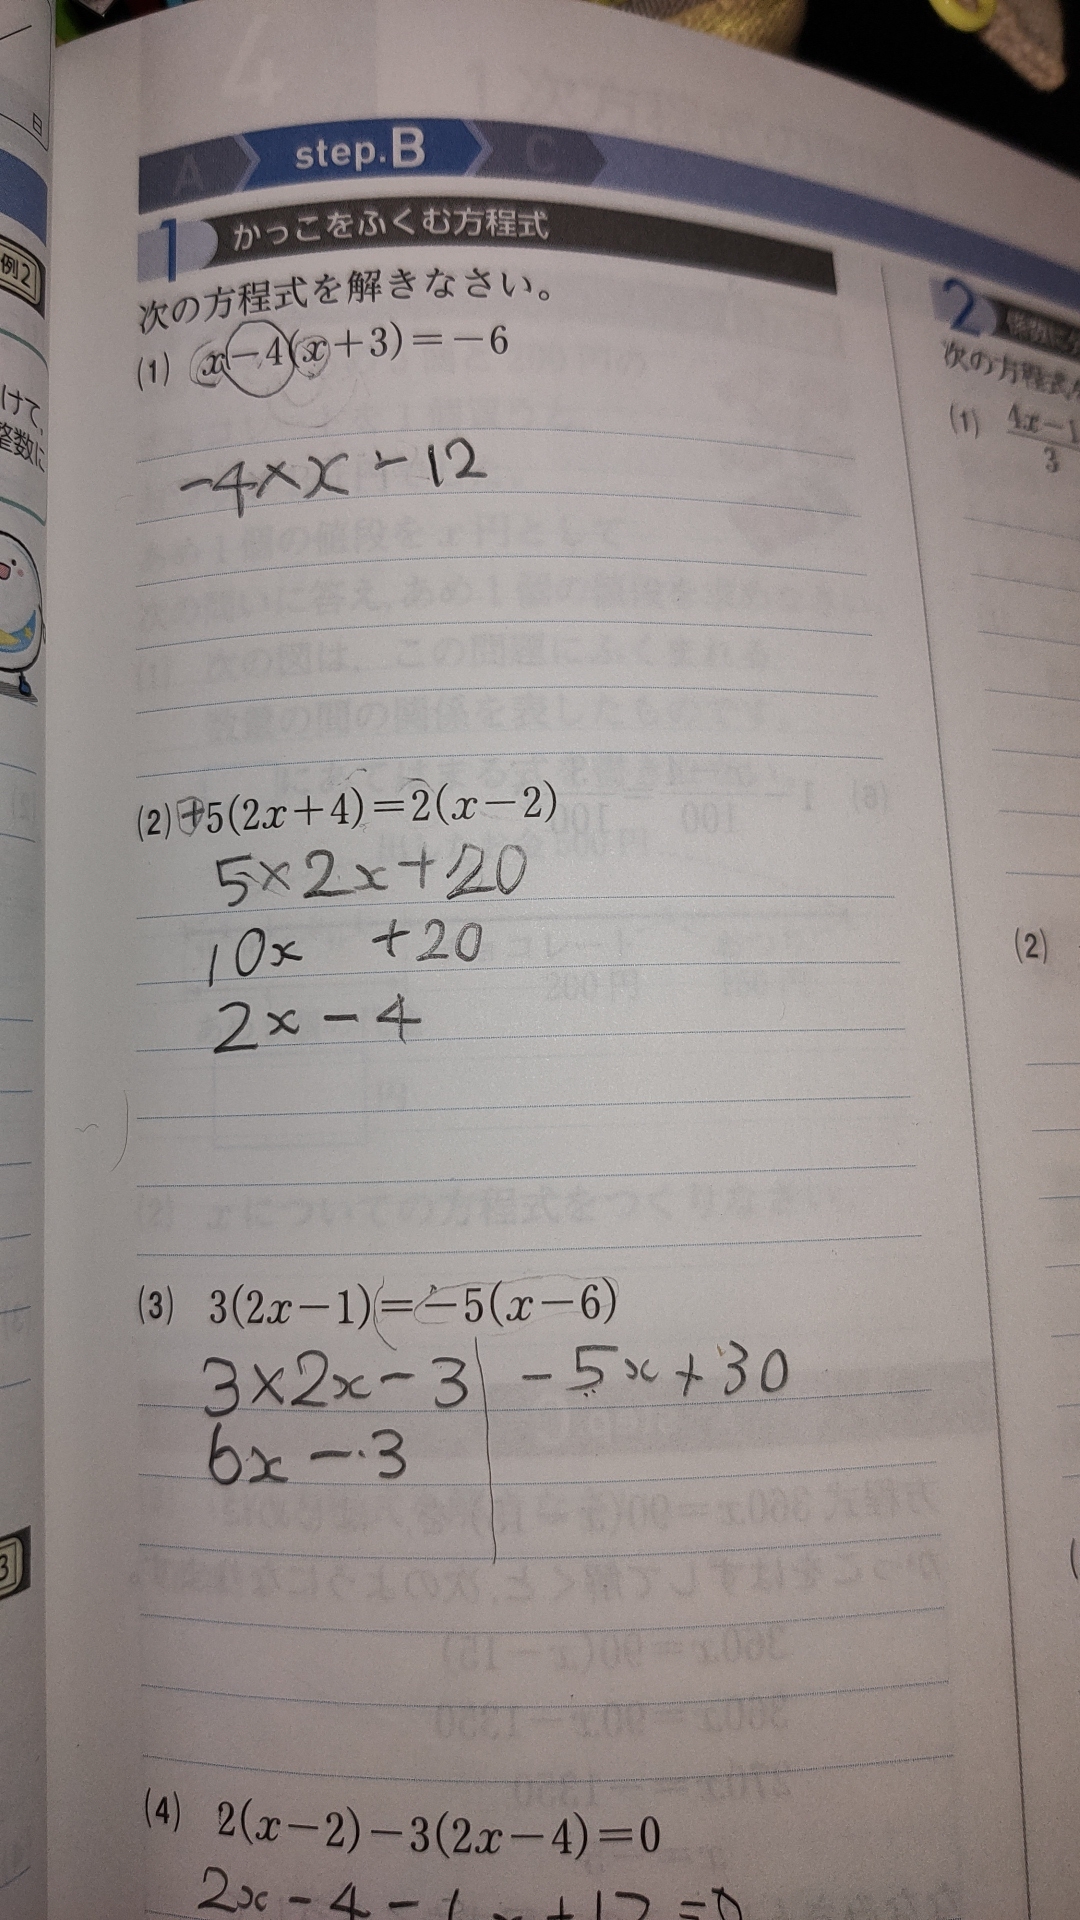 日
例2
けて,
整数に
A step.B C
1 かっこをふくむ方程式
次の方程式を解きなさい。
(1) x−4(x+3)=−6
−4×x −12
(2) +5(2x+4)=2(x−2)
5×2x+20
10x +20
2x−4
(3) 3(2x−1)=−5(x−6)
3×2x−3 −5x+30
6x−3
(4) 2(x−2)−3(2x−4)=0
2x−4− x+12=0
2
次の方程式
(1) 4x−1
3
(2)
3